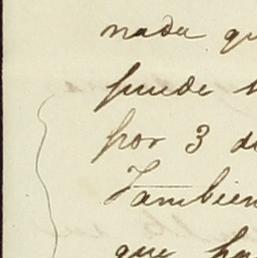 nada qu
puede
por 3 di
Tambien
que ha